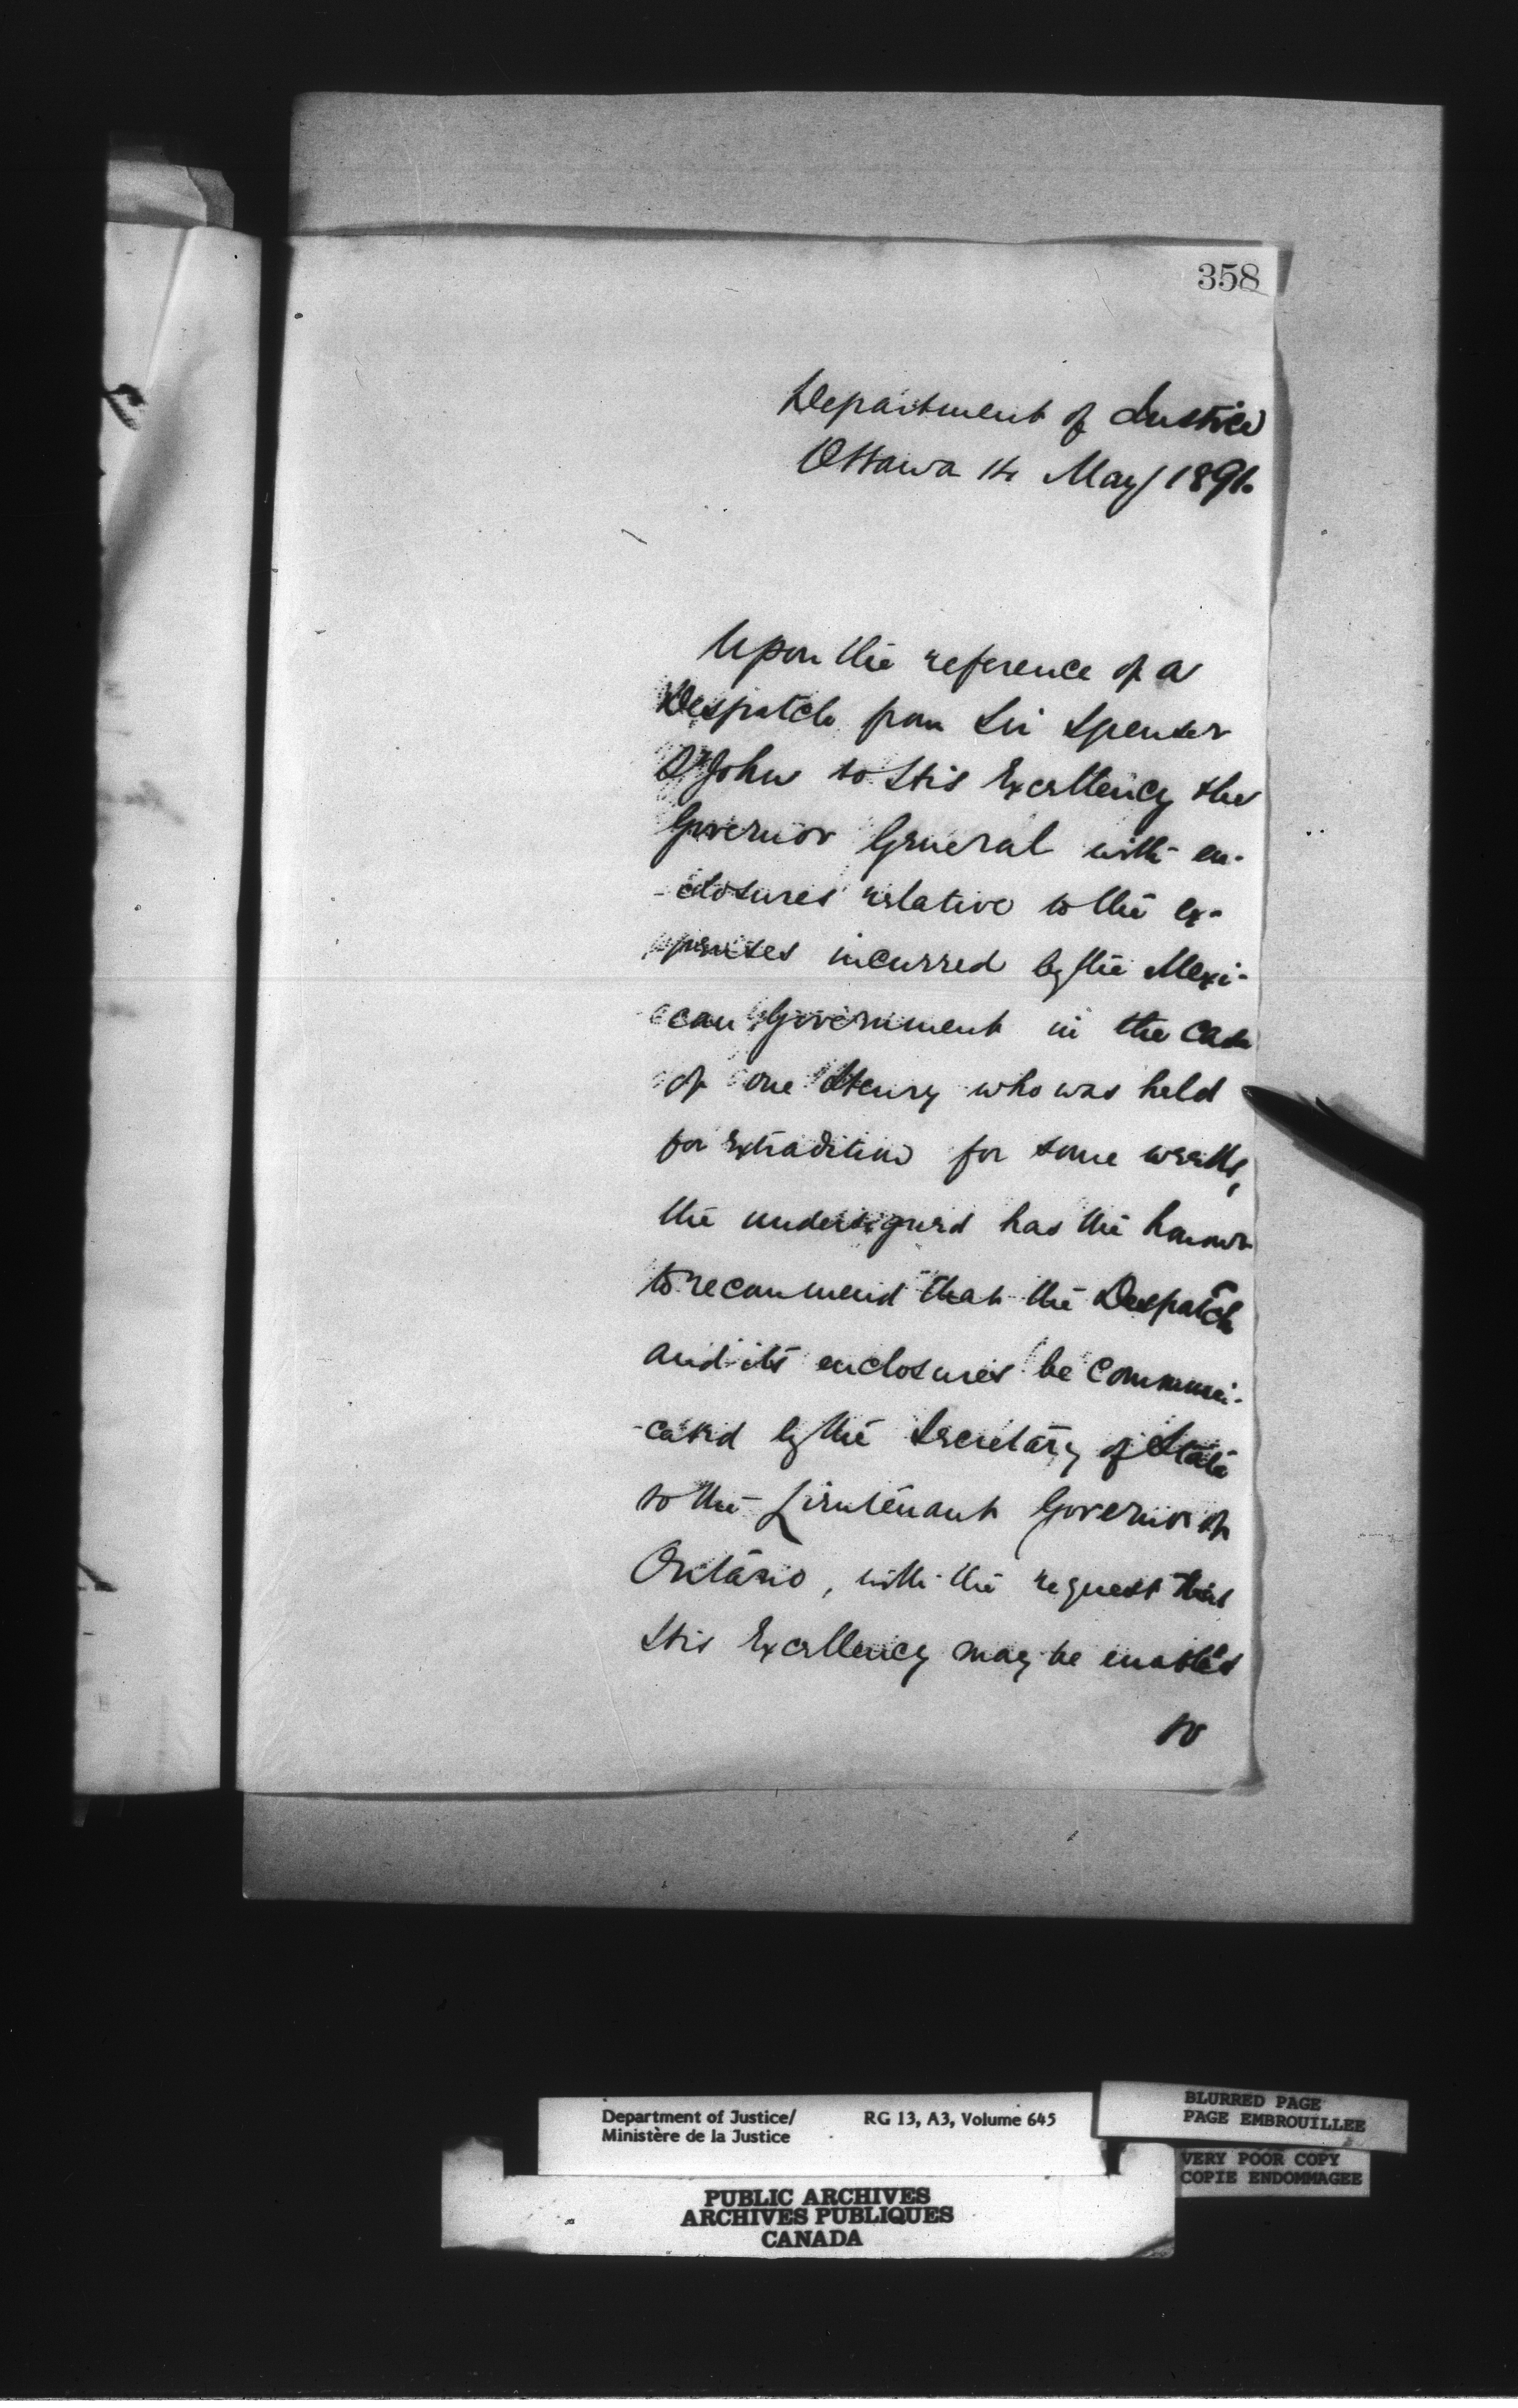 358
Department of Justice
Ottawa 14 May 1891.
Upon the reference of a
Despatch from Sir Spenser
St John to His Excellency the
Governor General with en-
-closures relative to the ex-
penses incurred by the Mexi-
can Government in the case
of one Henry who was held
for extradition for some weeks,
the undersigned has the honour
to recommend that the Despatch
and its enclosures be communi-
-cated by the Secretary of State
to the Lieutenant Governor of
Ontario, with the request that
His Excellency may be enabled
to
Department of Justice/ RG 13, A3, Volume 645
Ministère de la Justice
BLURRED PAGE
PAGE EMBROUILLEE
VERY POOR COPY
COPIE ENDOMMAGEE
PUBLIC ARCHIVES
ARCHIVES PUBLIQUES
CANADA